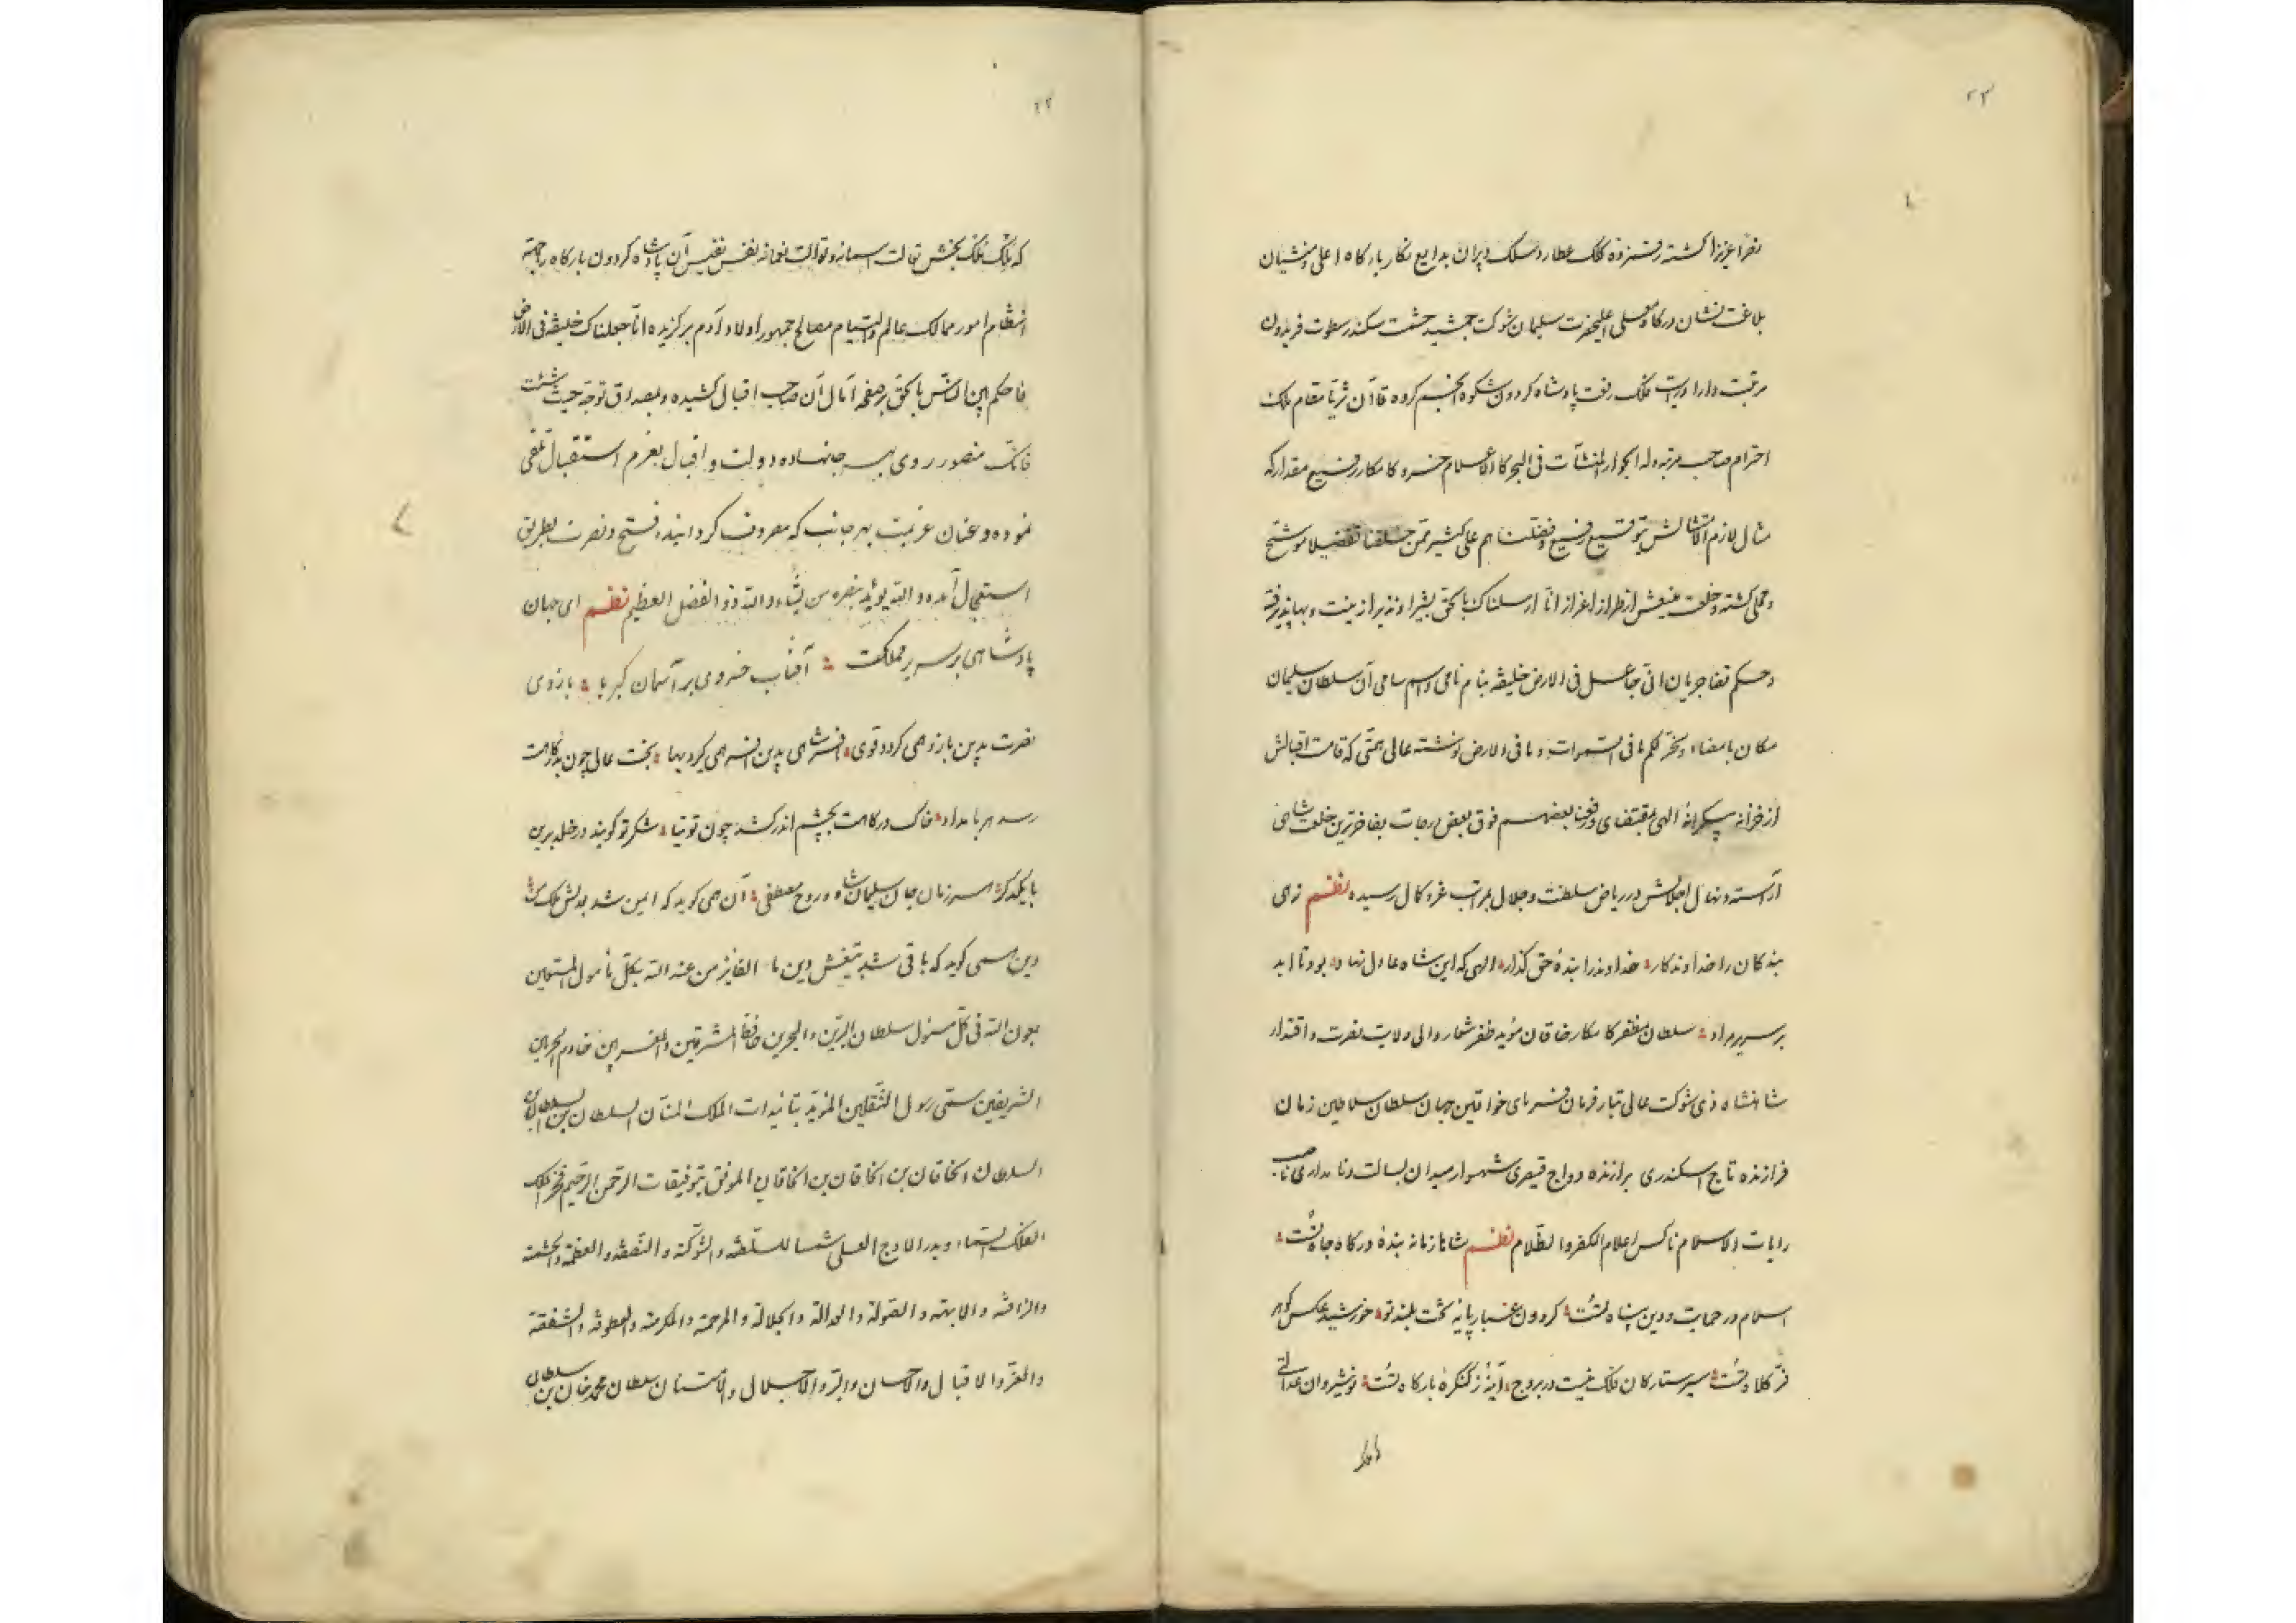 ۲۳
نصرا عزیزا گشته رقم زده کلک عطارد سلک دبیران بدایع نگار بارگاه اعلی و منشیان
بلاغت نشان درگاه معلی اعلیحضرت سلیمان شوکت جمشید حشمت سکندر سطوت فریدون
مرتبت دارا درایت فلک رفعت پادشاه گردون شکوه انجم گروه قاآن ثریا مقام ملک
احترام صاحب مرتبه وله الجوار المنشآت فی البحر کالاعلام خسرو کامکار رفیع مقدار که
مثال لازم الامتثالش بتوقیع رفیع وفضلناهم علی کثیر ممن خلقنا تفضیلا موشح
و محلی گشته و خلعت منیعش از طراز اعزاز انا ارسلناک بالحق بشیرا و نذیرا زینت و بها پذیرفته
و حکم قضا جریان انی جاعل فی الارض خلیفه بنام نامی و اسم سامی آن سلطان سلیمان
مکان بامضاء وسخر لکم ما فی السموات و ما فی الارض نوشته عالی همتی که قامت اقبالش
از خزانه بیکرانهٔ الهی بمقتضای ورفعنا بعضهم فوق بعض درجات بفاخرترین خلعت شاهی
آراسته و نهال اجلالش در ریاض سلطنت و جلال بمراتب عز و کمال رسیده نظم زهی
بندگان را خداوندگار خداوند را بندهٔ حق گذار الهی که این شاه عادل نهاد بود تا ابد
بر سریر مراد سلطان مظفر کامکار خاقان مؤید ظفر شعار والی ولایت نصرت و اقتدار
شاهنشاه ذی شوکت عالی تبار فرمان فرمای خواقین جهان سلطان سلاطین زمان
فرازنده تاج اسکندری برازنده دواج قیصری شهسوار میدان بسالت و نامداری ناصب
رایات الاسلام ناکس اعلام الکفر و الظلام نظم شاها زمانه بندهٔ درگاه جاه تست
اسلام در حمایت و دین پناه تست گردون غبار پایهٔ تخت بلند تو خورشید عکس گوهر
فر کلاه تست سیر ستارگان فلک نیست در بروج آینهٔ ز کنگرهٔ بارگاه تست نوشیروان عدالتی
۲۲
که ملک ملک بخش نفس نفیس آن پادشاه گردون بارگاه را جهة
انتظام امور ممالک عالم و التیام مصالح جمهور اولاد آدم برگزیده انا جعلناک خلیفة فی الارض
فاحکم بین الناس بالحق بر صفحه آمال آن صاحب اقبال کشیده و بمصداق توجه حیث شئت
فانک منصور روی بهر جا نهاده دولت و اقبال بعزم استقبال تلقی
نموده و عنان عزیمت بهر جانب که معروف گردانیده فتح و نصرت بطریق
استعجال آمده و الله یؤید بنصره من یشاء و الله ذو الفضل العظیم نظم ای جهان
پادشاهی بر سریر مملکت آفتاب خسروی بر آسمان کبریا بازوی
نصرت بدین بازو همی گردد قوی افسر شاهی بدین افسر همی گیرد بها بخت عالی چون بدرگاهت
رسد هر بامداد خاک درگاهت بچشم اندر کشد چون توتیا شکر تو گویند در خلد برین
با یکدگر هر زمان جان سلیمان شاه و روح مصطفی آن همی گوید که ایمن شد بعدلش ملک من
وین همی گوید که باقی شد بتیغش دین ما الفایز من عند الله بکل مأمول المستعین
بعون الله فی کل مسئول سلطان البرین و البحرین حافظ المشرقین و المغربین خادم الحرمین
الشریفین سمی رسول الثقلین المؤید بتائیدات الملک المنان السلطان بن السلطان بن
السلطان الخاقان بن الخاقان بن الخاقان الموفق بتوفیقات الرحمن الرحیم فخر الملک
الفلک السماء و بدر الاوج العلی شمسا للسلطنة و الشوکة و النصفة و العظمة و الحشمة
والرافة و الابهة و الصولة و العدالة و الجلالة و المرحمة و المکرمة و العطوفة و الشفقة
والعز و الاقبال و الاحسان و البر و الاجلال و الامتنان سلطان محمد خان بن سلطان